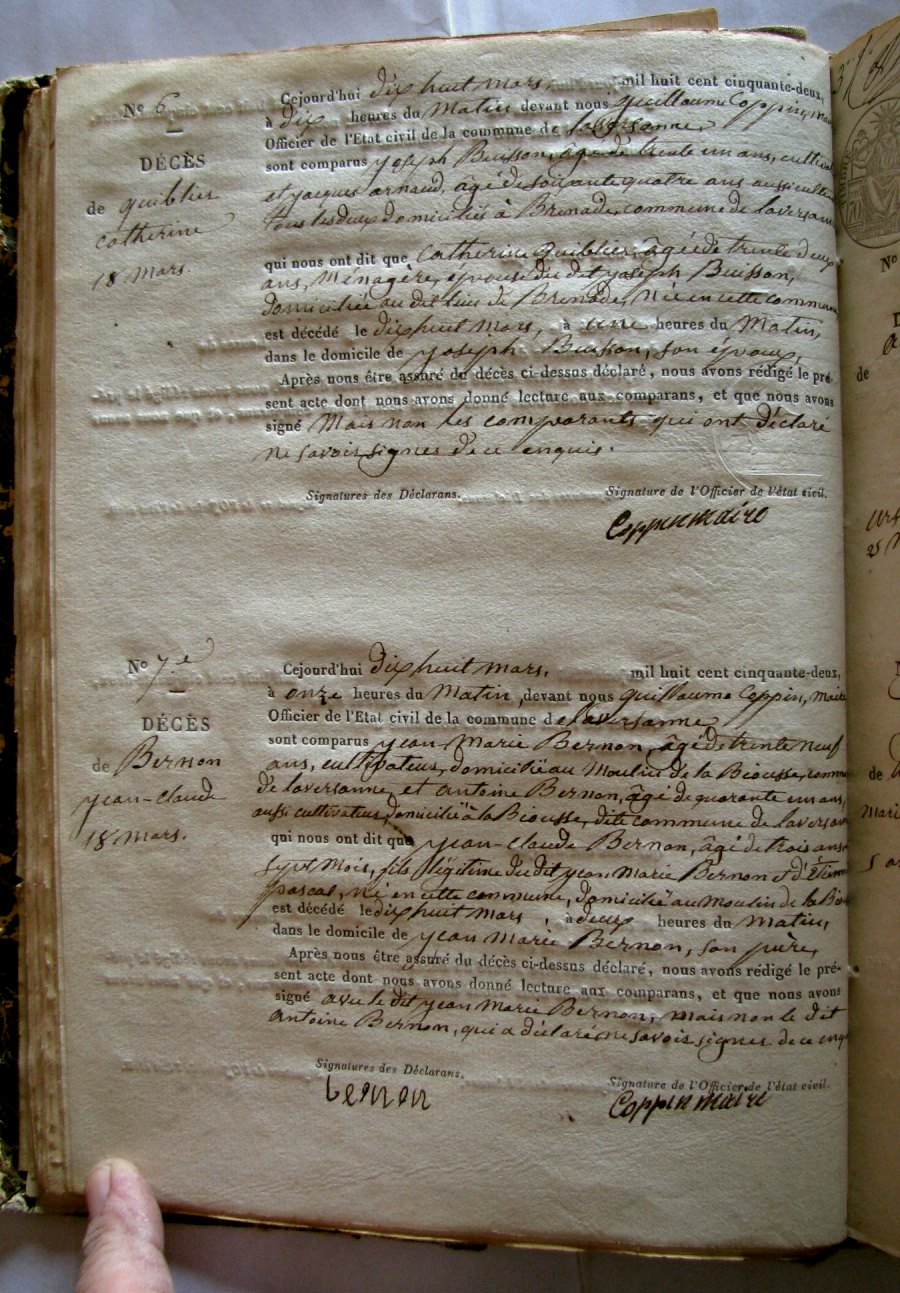 N° 6
DÉCÈS
de Guiblier
Catherine
18 Mars.
Cejourd'hui dix huit mars mil huit cent cinquante-deux,
à dix heures du Matin devant nous Guillaume Coppin, Maire
Officier de l'Etat civil de la commune de laversanne,
sont comparus joseph Buisson, âgé de trente un ans, cultiv
et jacques arnaud, âgé de soixante quatre ans aussi cultiv
tous les deux domiciliés à Brenade, commune de laversanne
qui nous ont dit que Catherine Guiblier, âgée de trente deux
ans, Ménagère, épouse du dit joseph Buisson,
domiciliée au dit lieu de Brenade, Née en cette commune
est décédé le dix huit mars, à une heures du Matin,
dans le domicile de joseph Buisson, son époux,
Après nous être assuré du décès ci-dessus déclaré, nous avons rédigé le pré-
sent acte dont nous avons donné lecture aux comparans, et que nous avons
signé Mais non les comparants qui ont déclaré
ne savoir signer de ce enquis.
Signatures des Déclarans. Signature de l'Officier de l'état civil.
Coppin maire
N° 7e
DÉCÈS
de Bernon
jean-claude
18 mars.
Cejourd'hui dix huit mars. mil huit cent cinquante-deux,
à onze heures du Matin, devant nous Guillaume Coppin, Maire
Officier de l'Etat civil de la commune de laversanne
sont comparus jean Marie Bernon, âgé de trente neuf
ans, cultivateur, domicilié au Moulin de la Biousse, commune
de laversanne, et antoine Bernon, âgé de quarante un ans,
aussi cultivateur, domicilié à la Biousse, dite commune de laversanne
qui nous ont dit que jean-claude Bernon, âgé de trois ans
sept Mois, fils légitime du dit jean Marie Bernon et d'Etienn
pascal, Né en cette commune, domicilié au Moulin de la Biou
est décédé le dix huit mars, à deux heures du matin,
dans le domicile de jean Marie Bernon, son père,
Après nous être assuré du décès ci-dessus déclaré, nous avons rédigé le pré-
sent acte dont nous avons donné lecture aux comparans, et que nous avons
signé avec le dit jean Marie Bernon, mais non le dit
antoine Bernon, qui a déclaré ne savoir signer de ce enqui
Signatures des Déclarans. Signature de l'Officier de l'état civil.
bernon Coppin maire